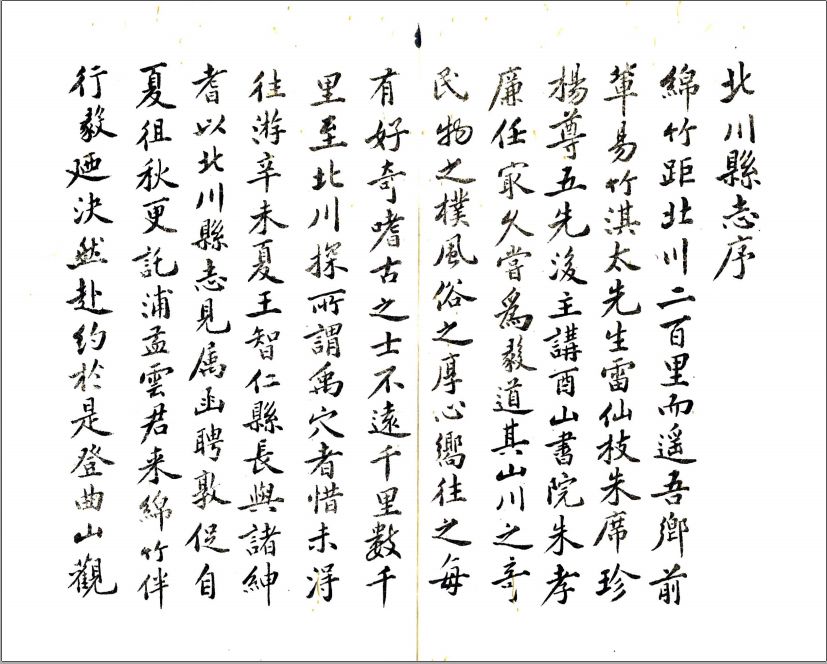 北川縣志序
綿竹距北川二百里而遥吾鄉前
輩易竹淇太先生雷仙枝朱席珍
楊尊五先後主講酉山書院朱孝
廉任最久嘗爲毅道其山川之奇
民物之樸風俗之厚心嚮往之每
有好奇嗜古之士不遠千里數千
里至北川探所謂禹穴者惜未得
往游辛未夏王智仁縣長與諸紳
耆以北川縣志見属函聘敦促自
夏徂秋更託浦孟雲君来綿竹伴
行毅廼決然赴约於是登曲山觀